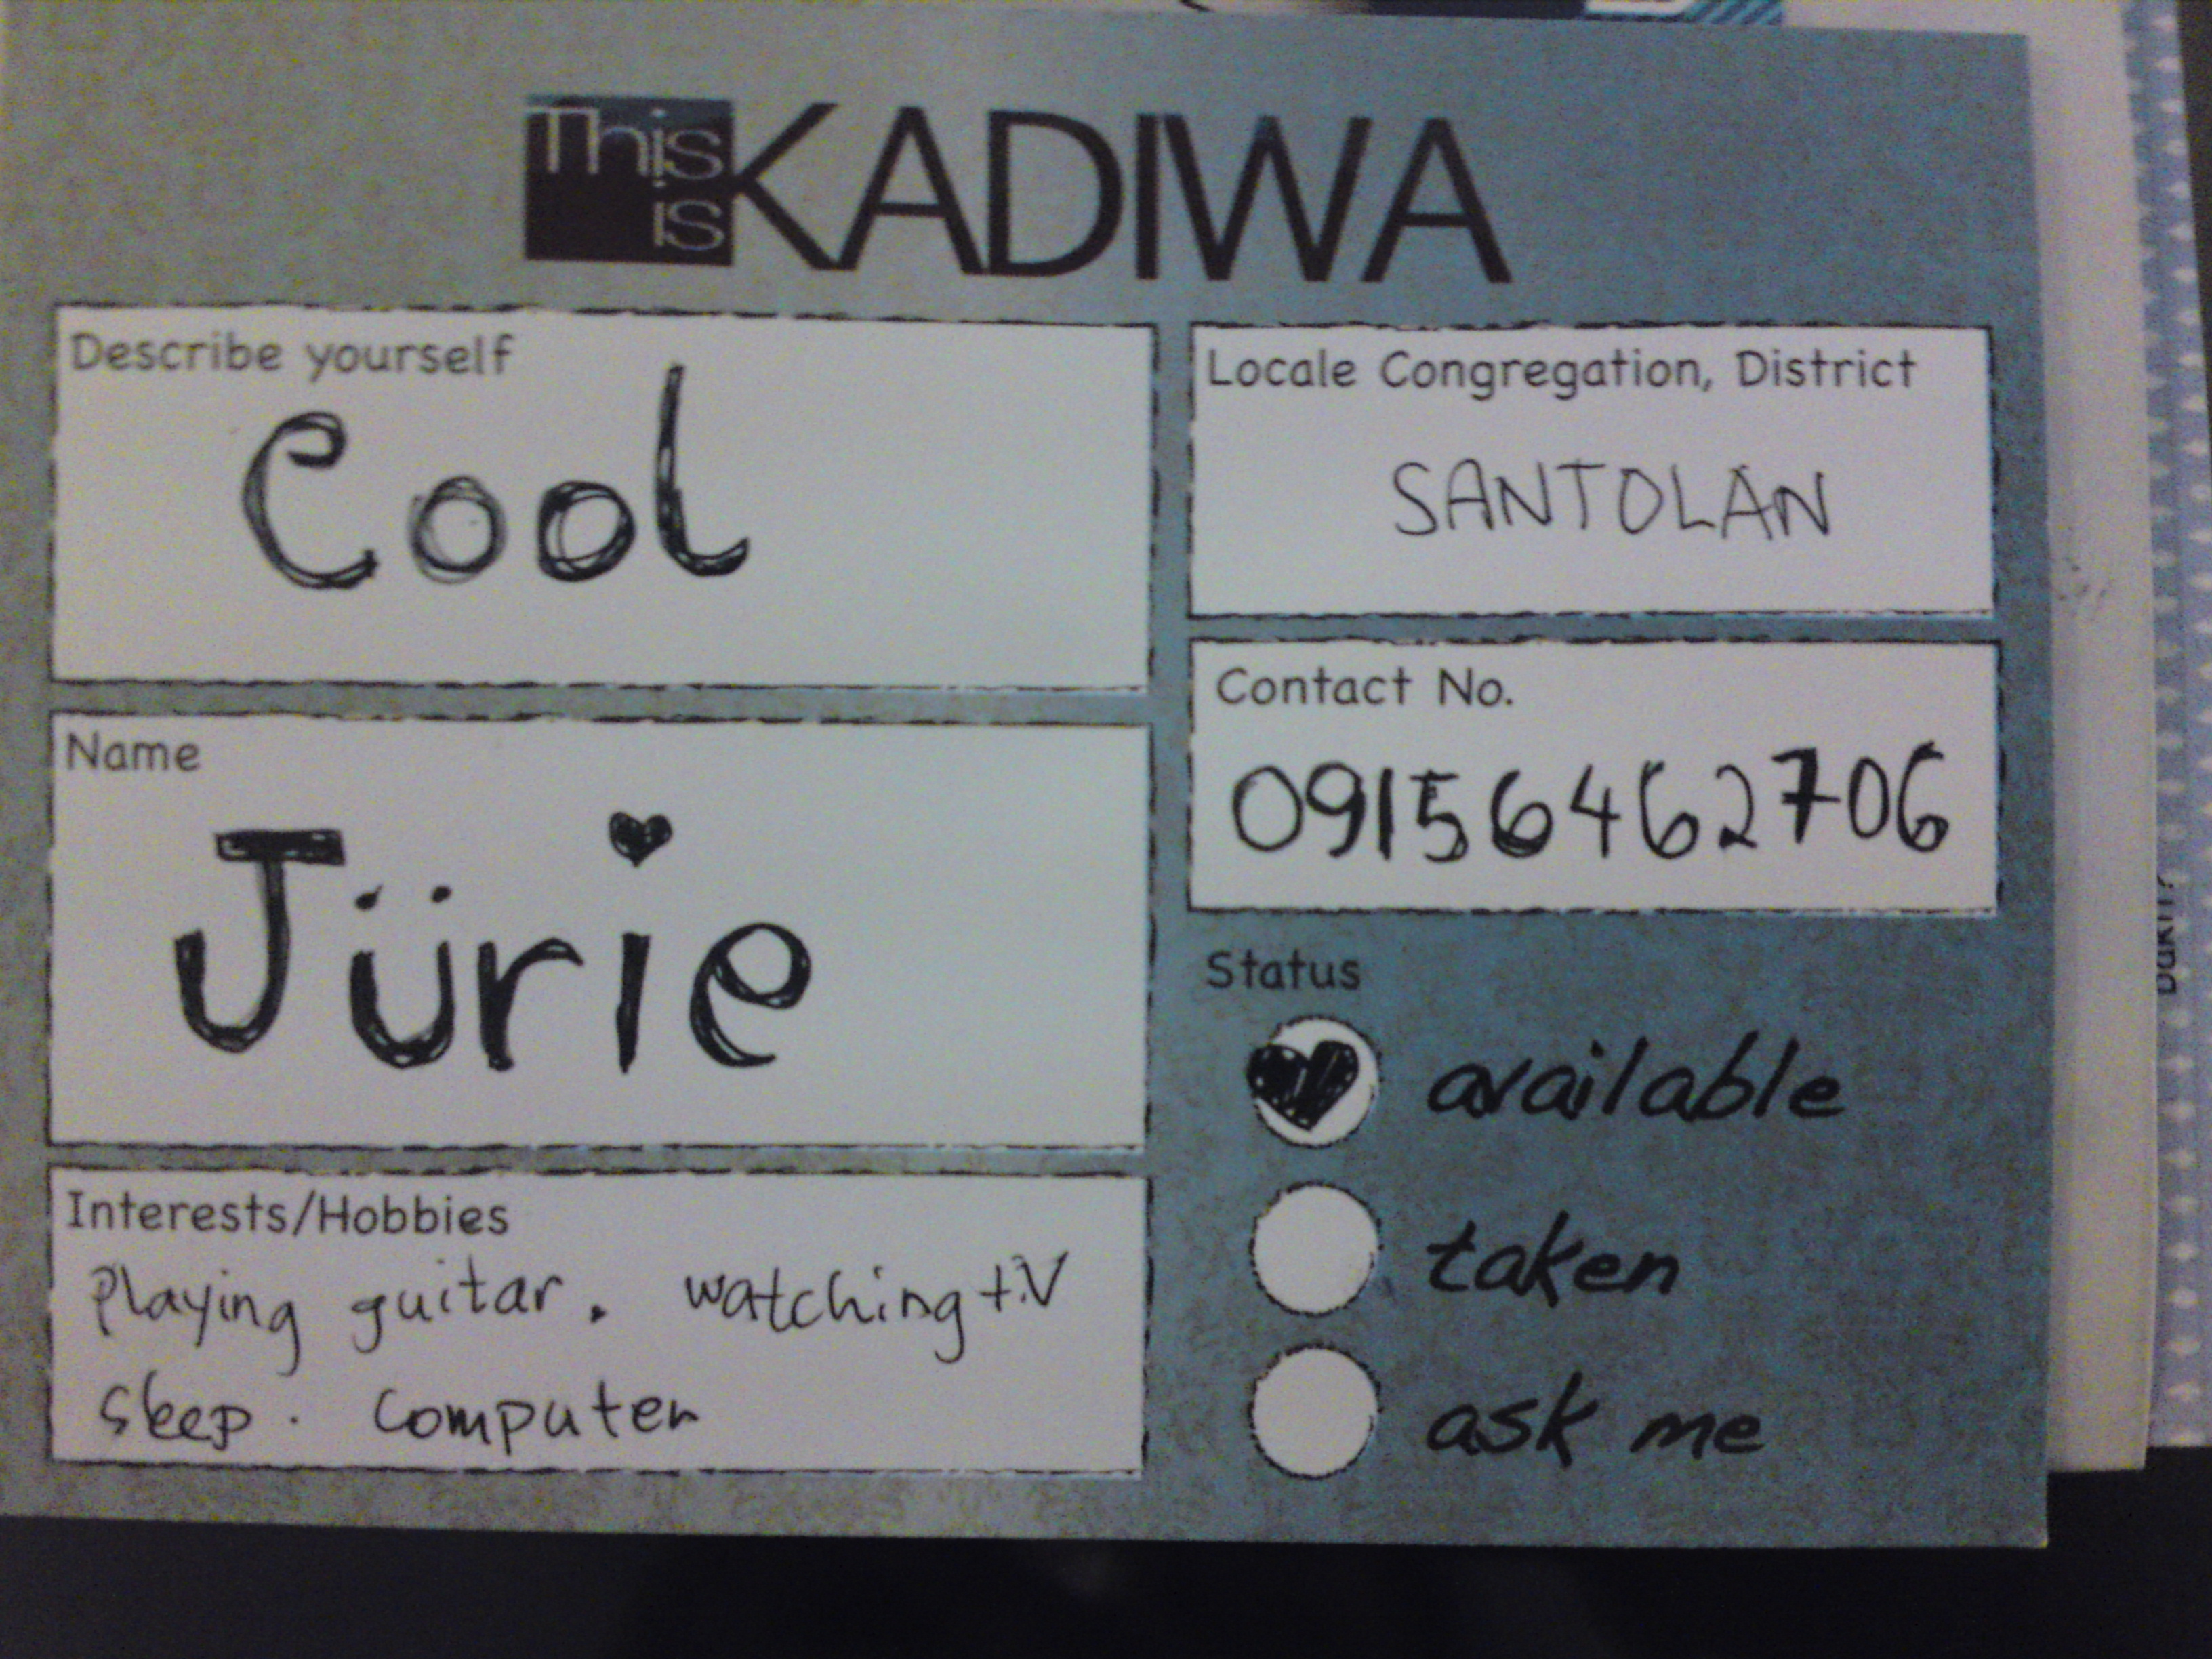 This
is
KADIWA
Describe yourself
Cool
Name
Jürie
Interests/Hobbies
Playing guitar. watching t.V
sleep. computer
Locale Congregation, District
SANTOLAN
Contact No.
09156462706
Status
available
taken
ask me